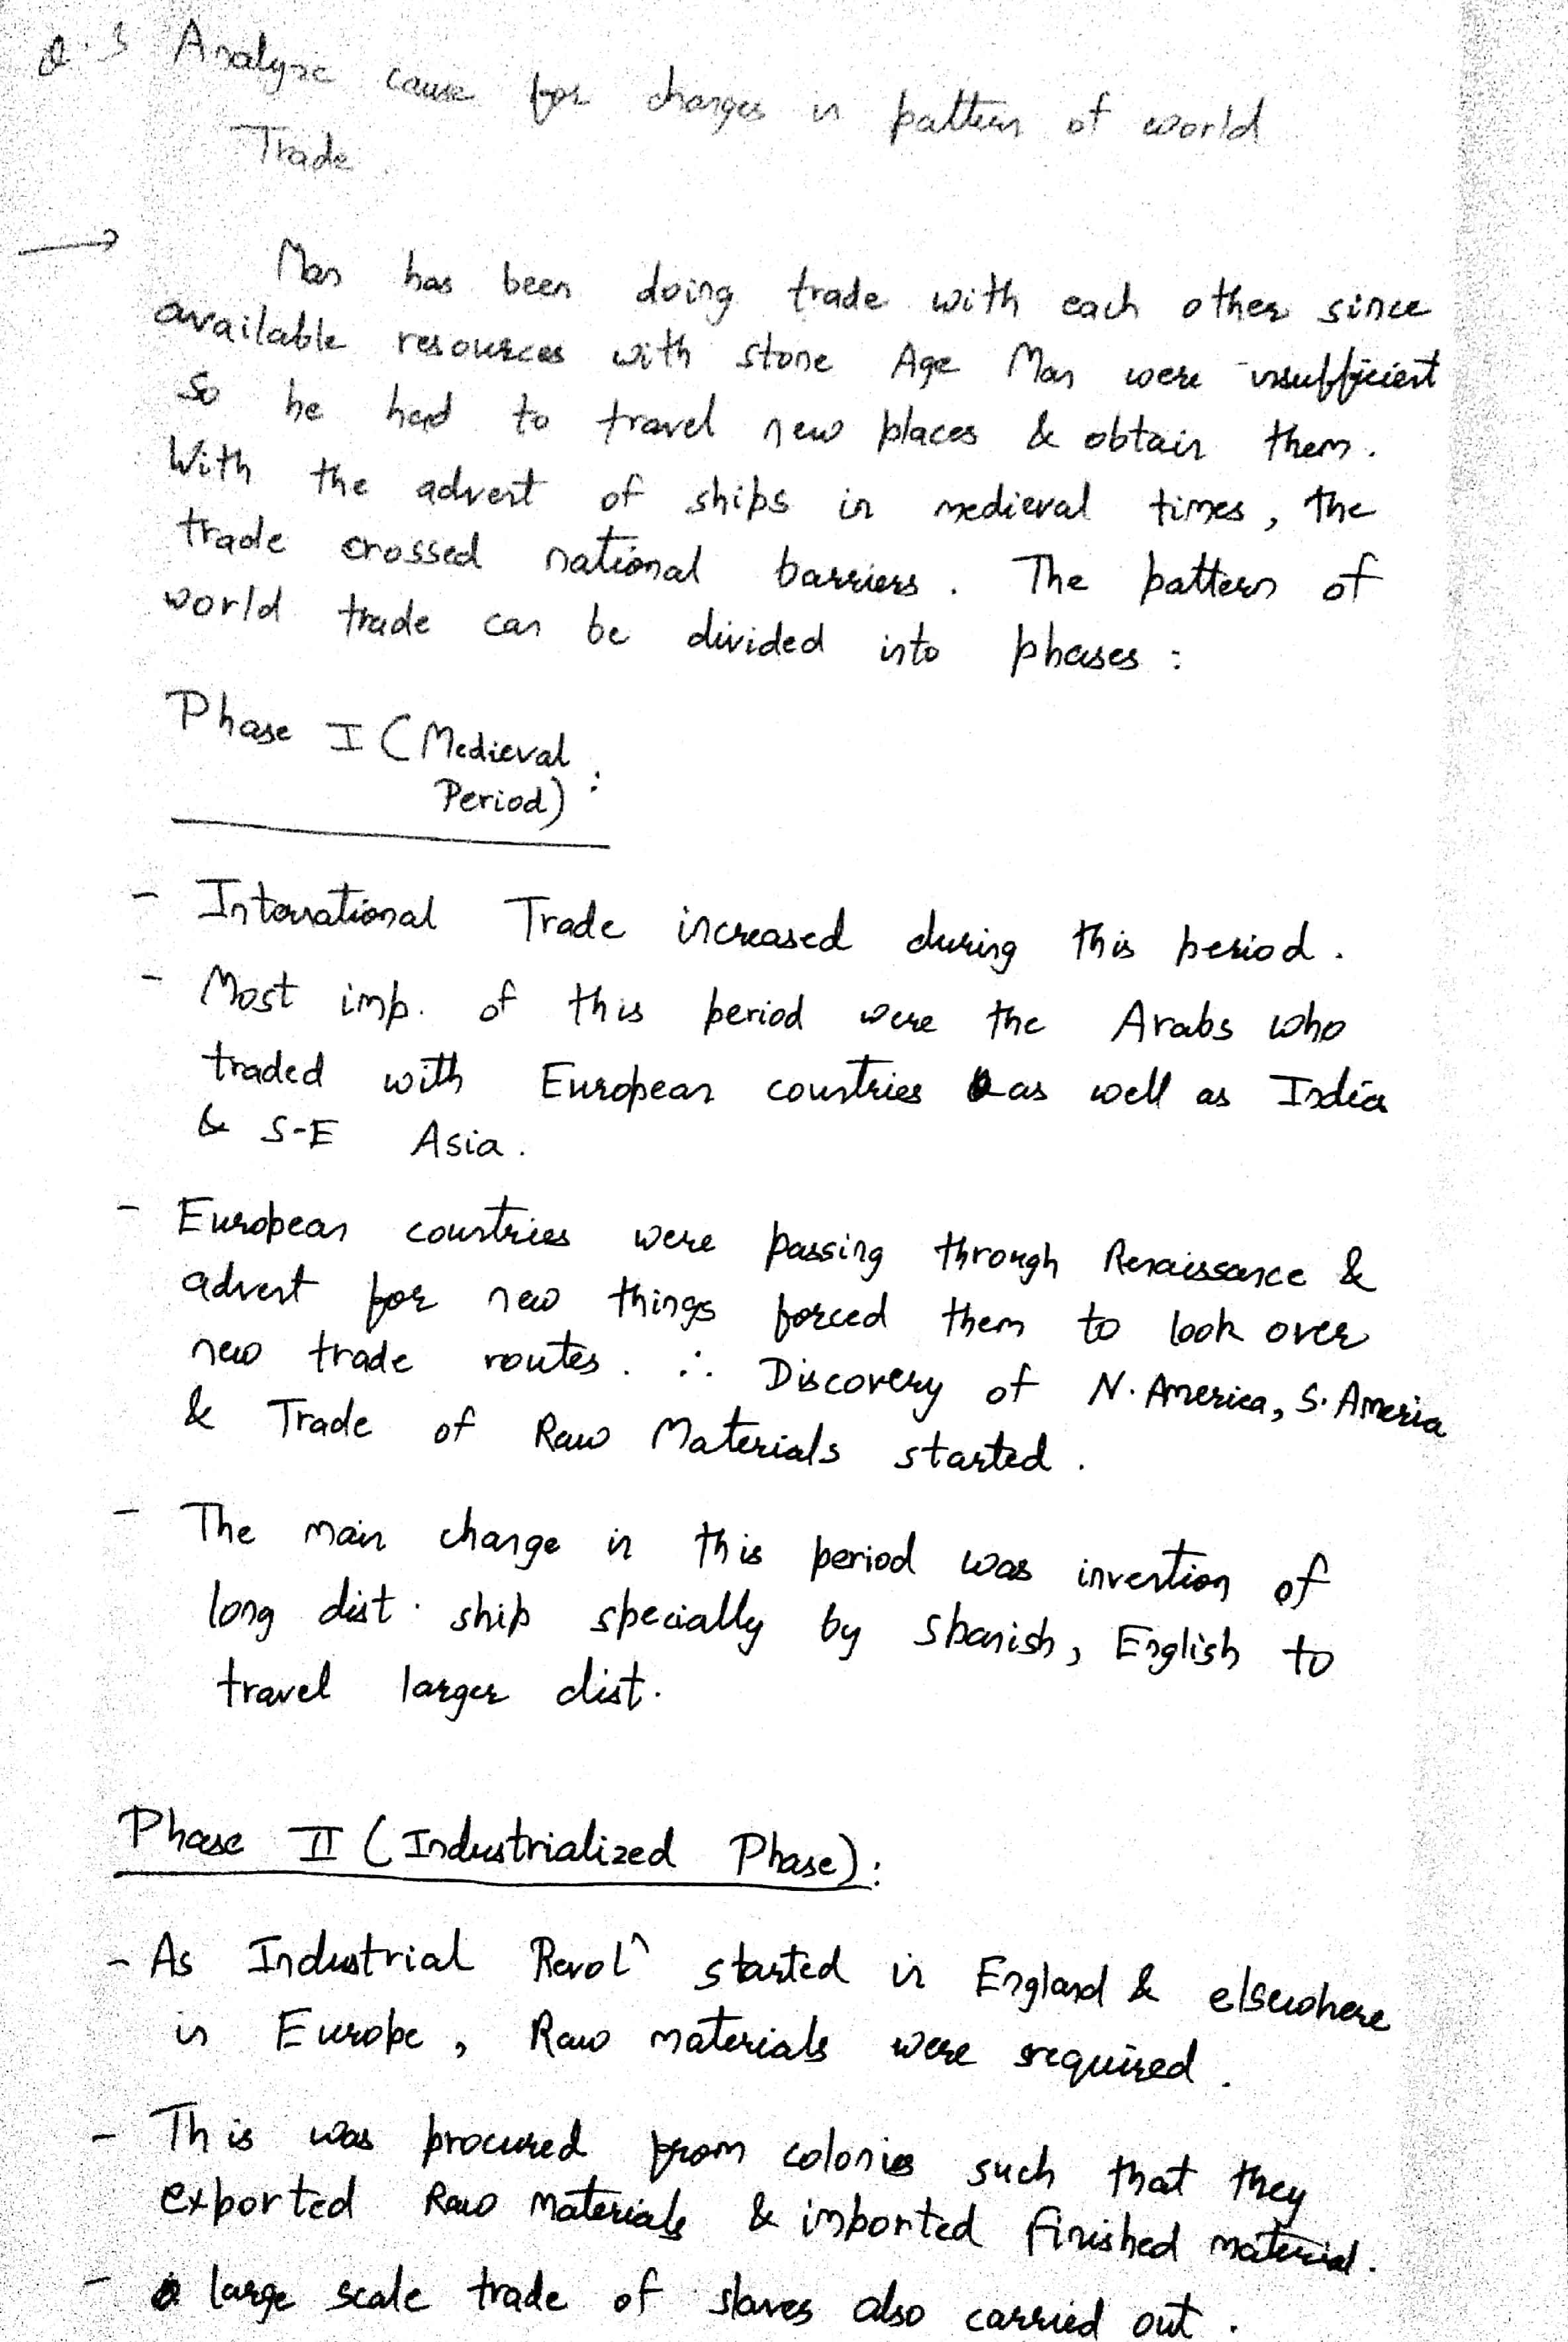 Q.3 Analyse cause for changes in pattern of world
Trade
→ Man has been doing trade with each other since
available resources with stone Age Man were insufficient
So he had to travel new places & obtain them.
With the advent of ships in medieval times, the
trade crossed national barriers. The pattern of
world trade can be divided into phases :
Phase I (Medieval
Period) :
- International Trade increased during this period.
- Most imp. of this period were the Arabs who
traded with European countries as well as India
& S-E Asia.
- European countries were passing through Renaissance &
advent for new things forced them to look over
new trade routes. ∴ Discovery of N. America, S. Ameria
& Trade of Raw Materials started.
- The main change in this period was invention of
long dist. ship specially by spanish, English to
travel larger dist.
Phase II (Industrialized Phase) :
- As Industrial Revol^n started in England & elsewhere
in Europe, Raw materials were required.
- This was procured from colonies such that they
exported Raw Materials & imported finished material.
- large scale trade of slaves also carried out.